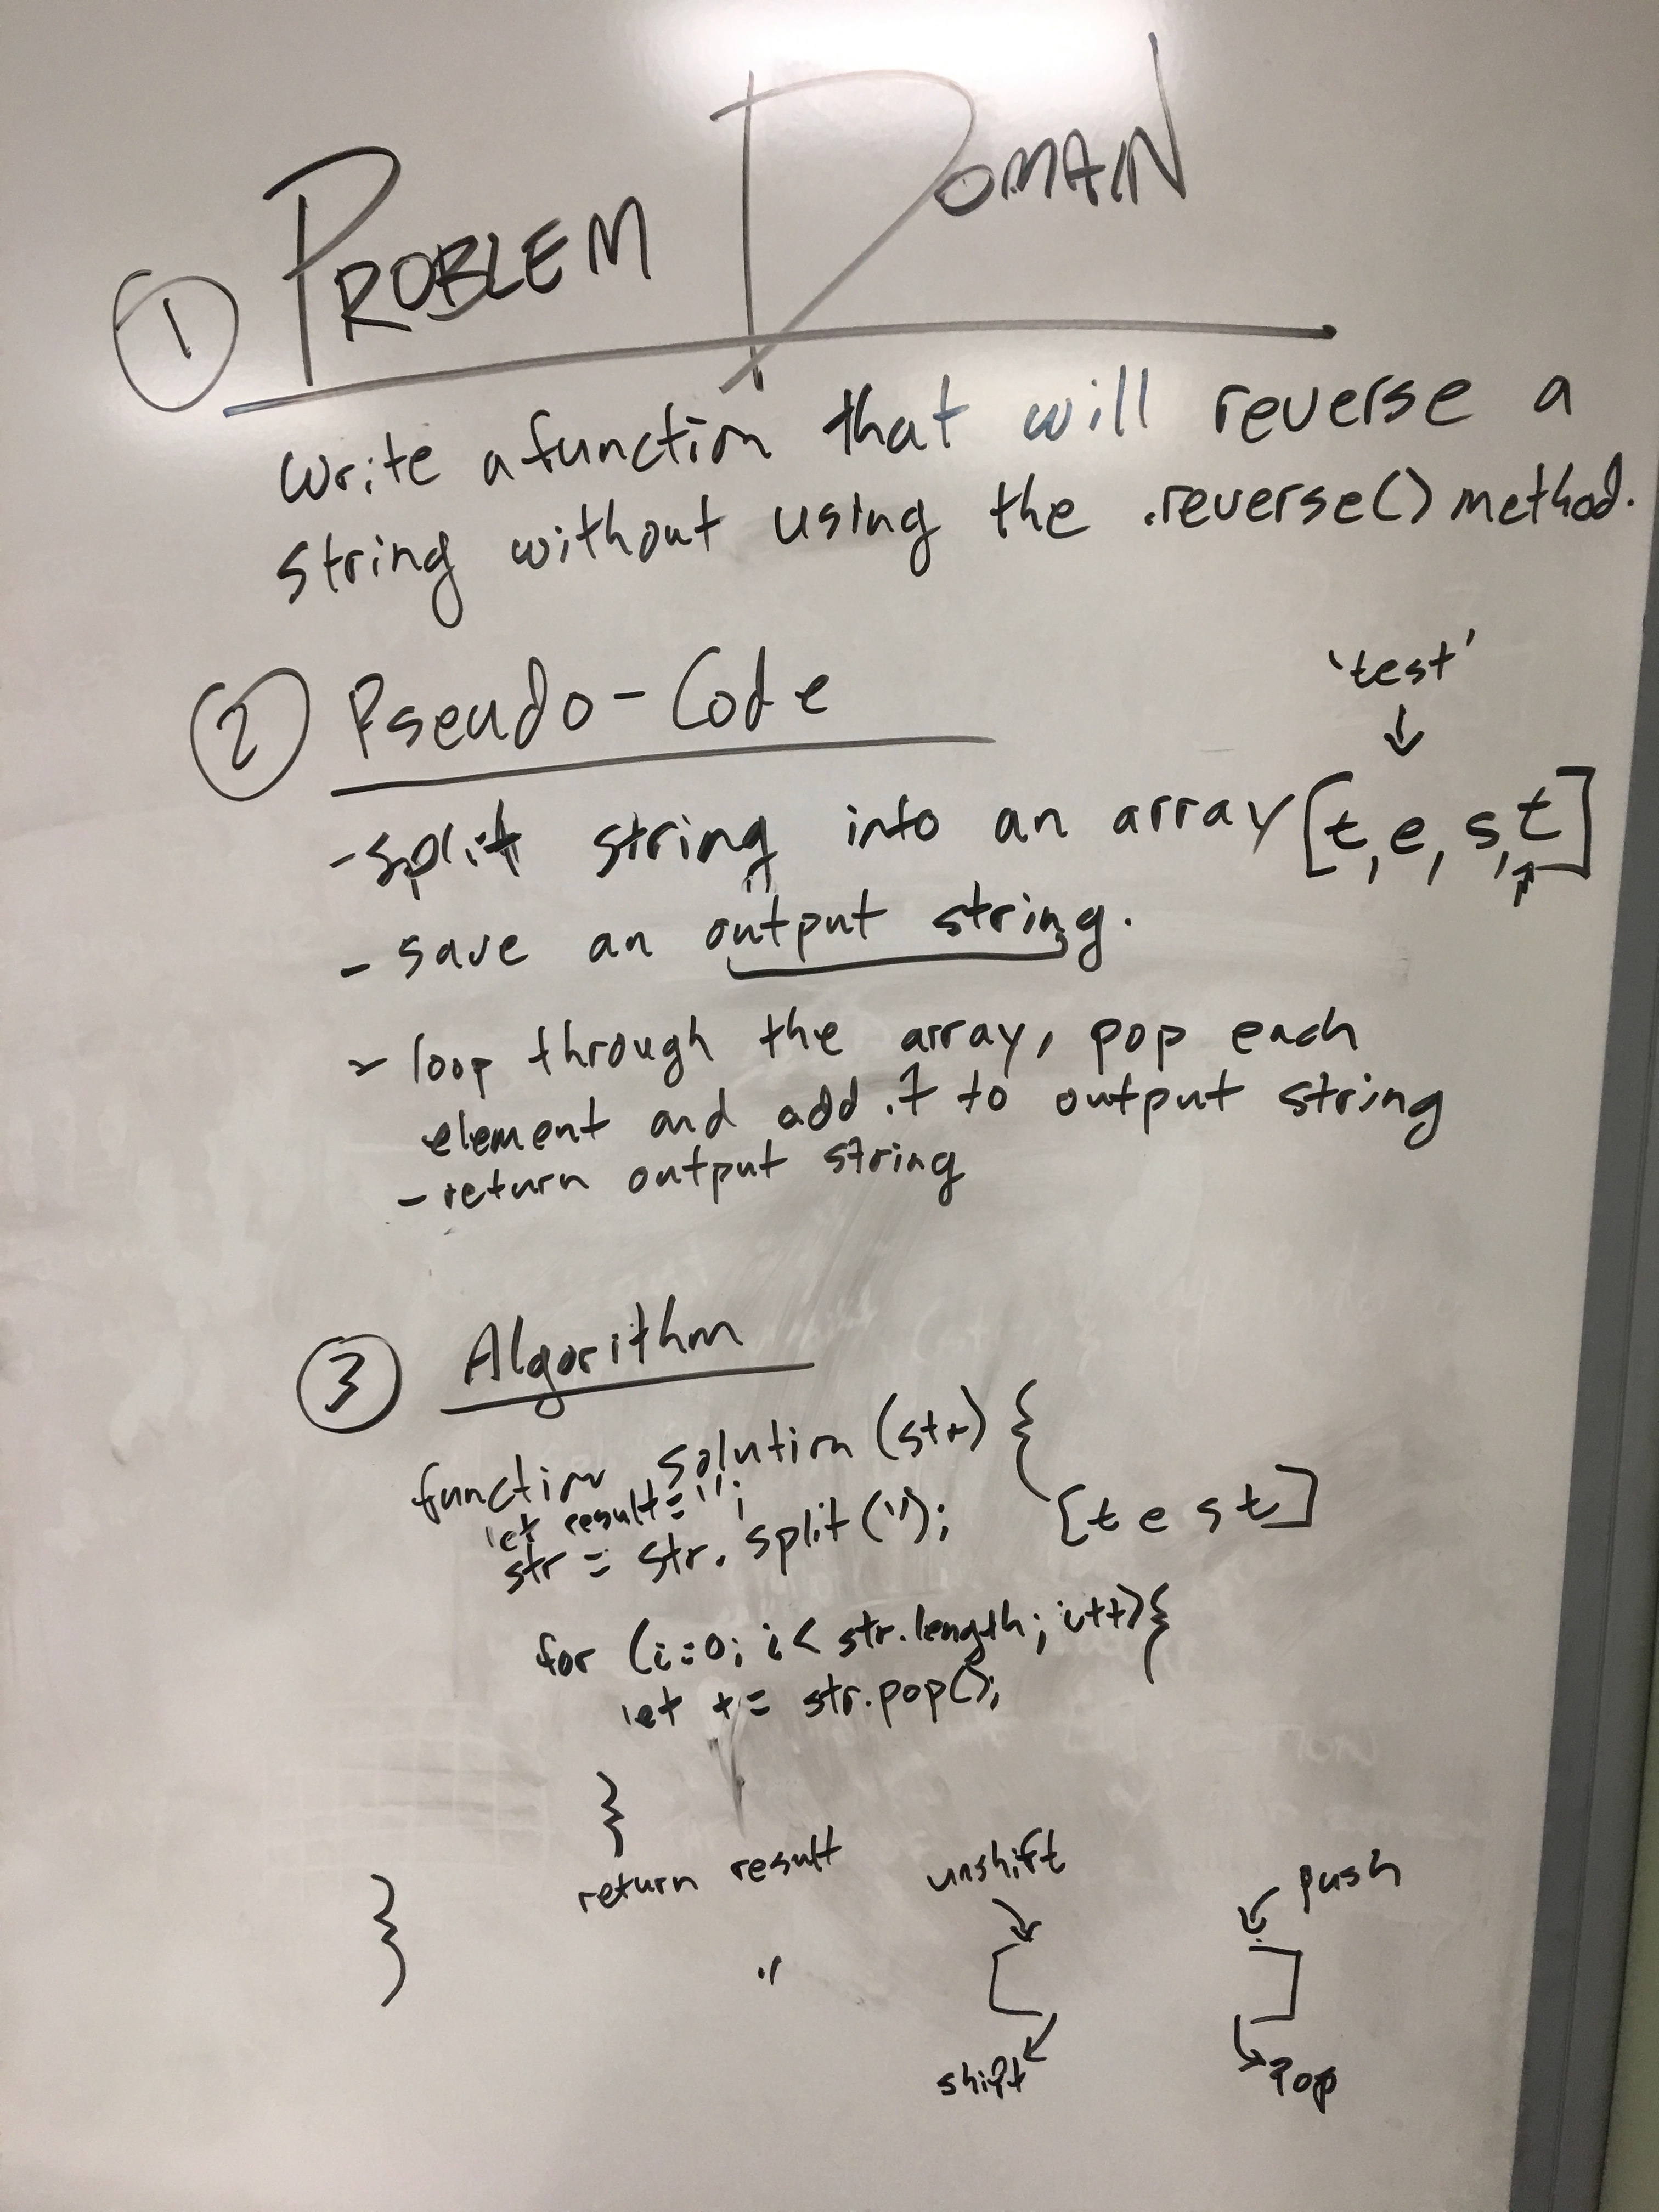 1 PROBLEM DOMAIN
write a function that will reverse a
string without using the .reverse() method.
2 Pseudo-Code
'test'
- split string into an array [t, e, s, t]
- save an output string.
- loop through the array, pop each
element and add it to output string
- return output string
3 Algorithm
function solution (str) {
let result = '';
str = str.split(''); [t e s t]
for (i=0; i < str.length; i++) {
let += str.pop();
}
return result
}
unshift push
shift pop